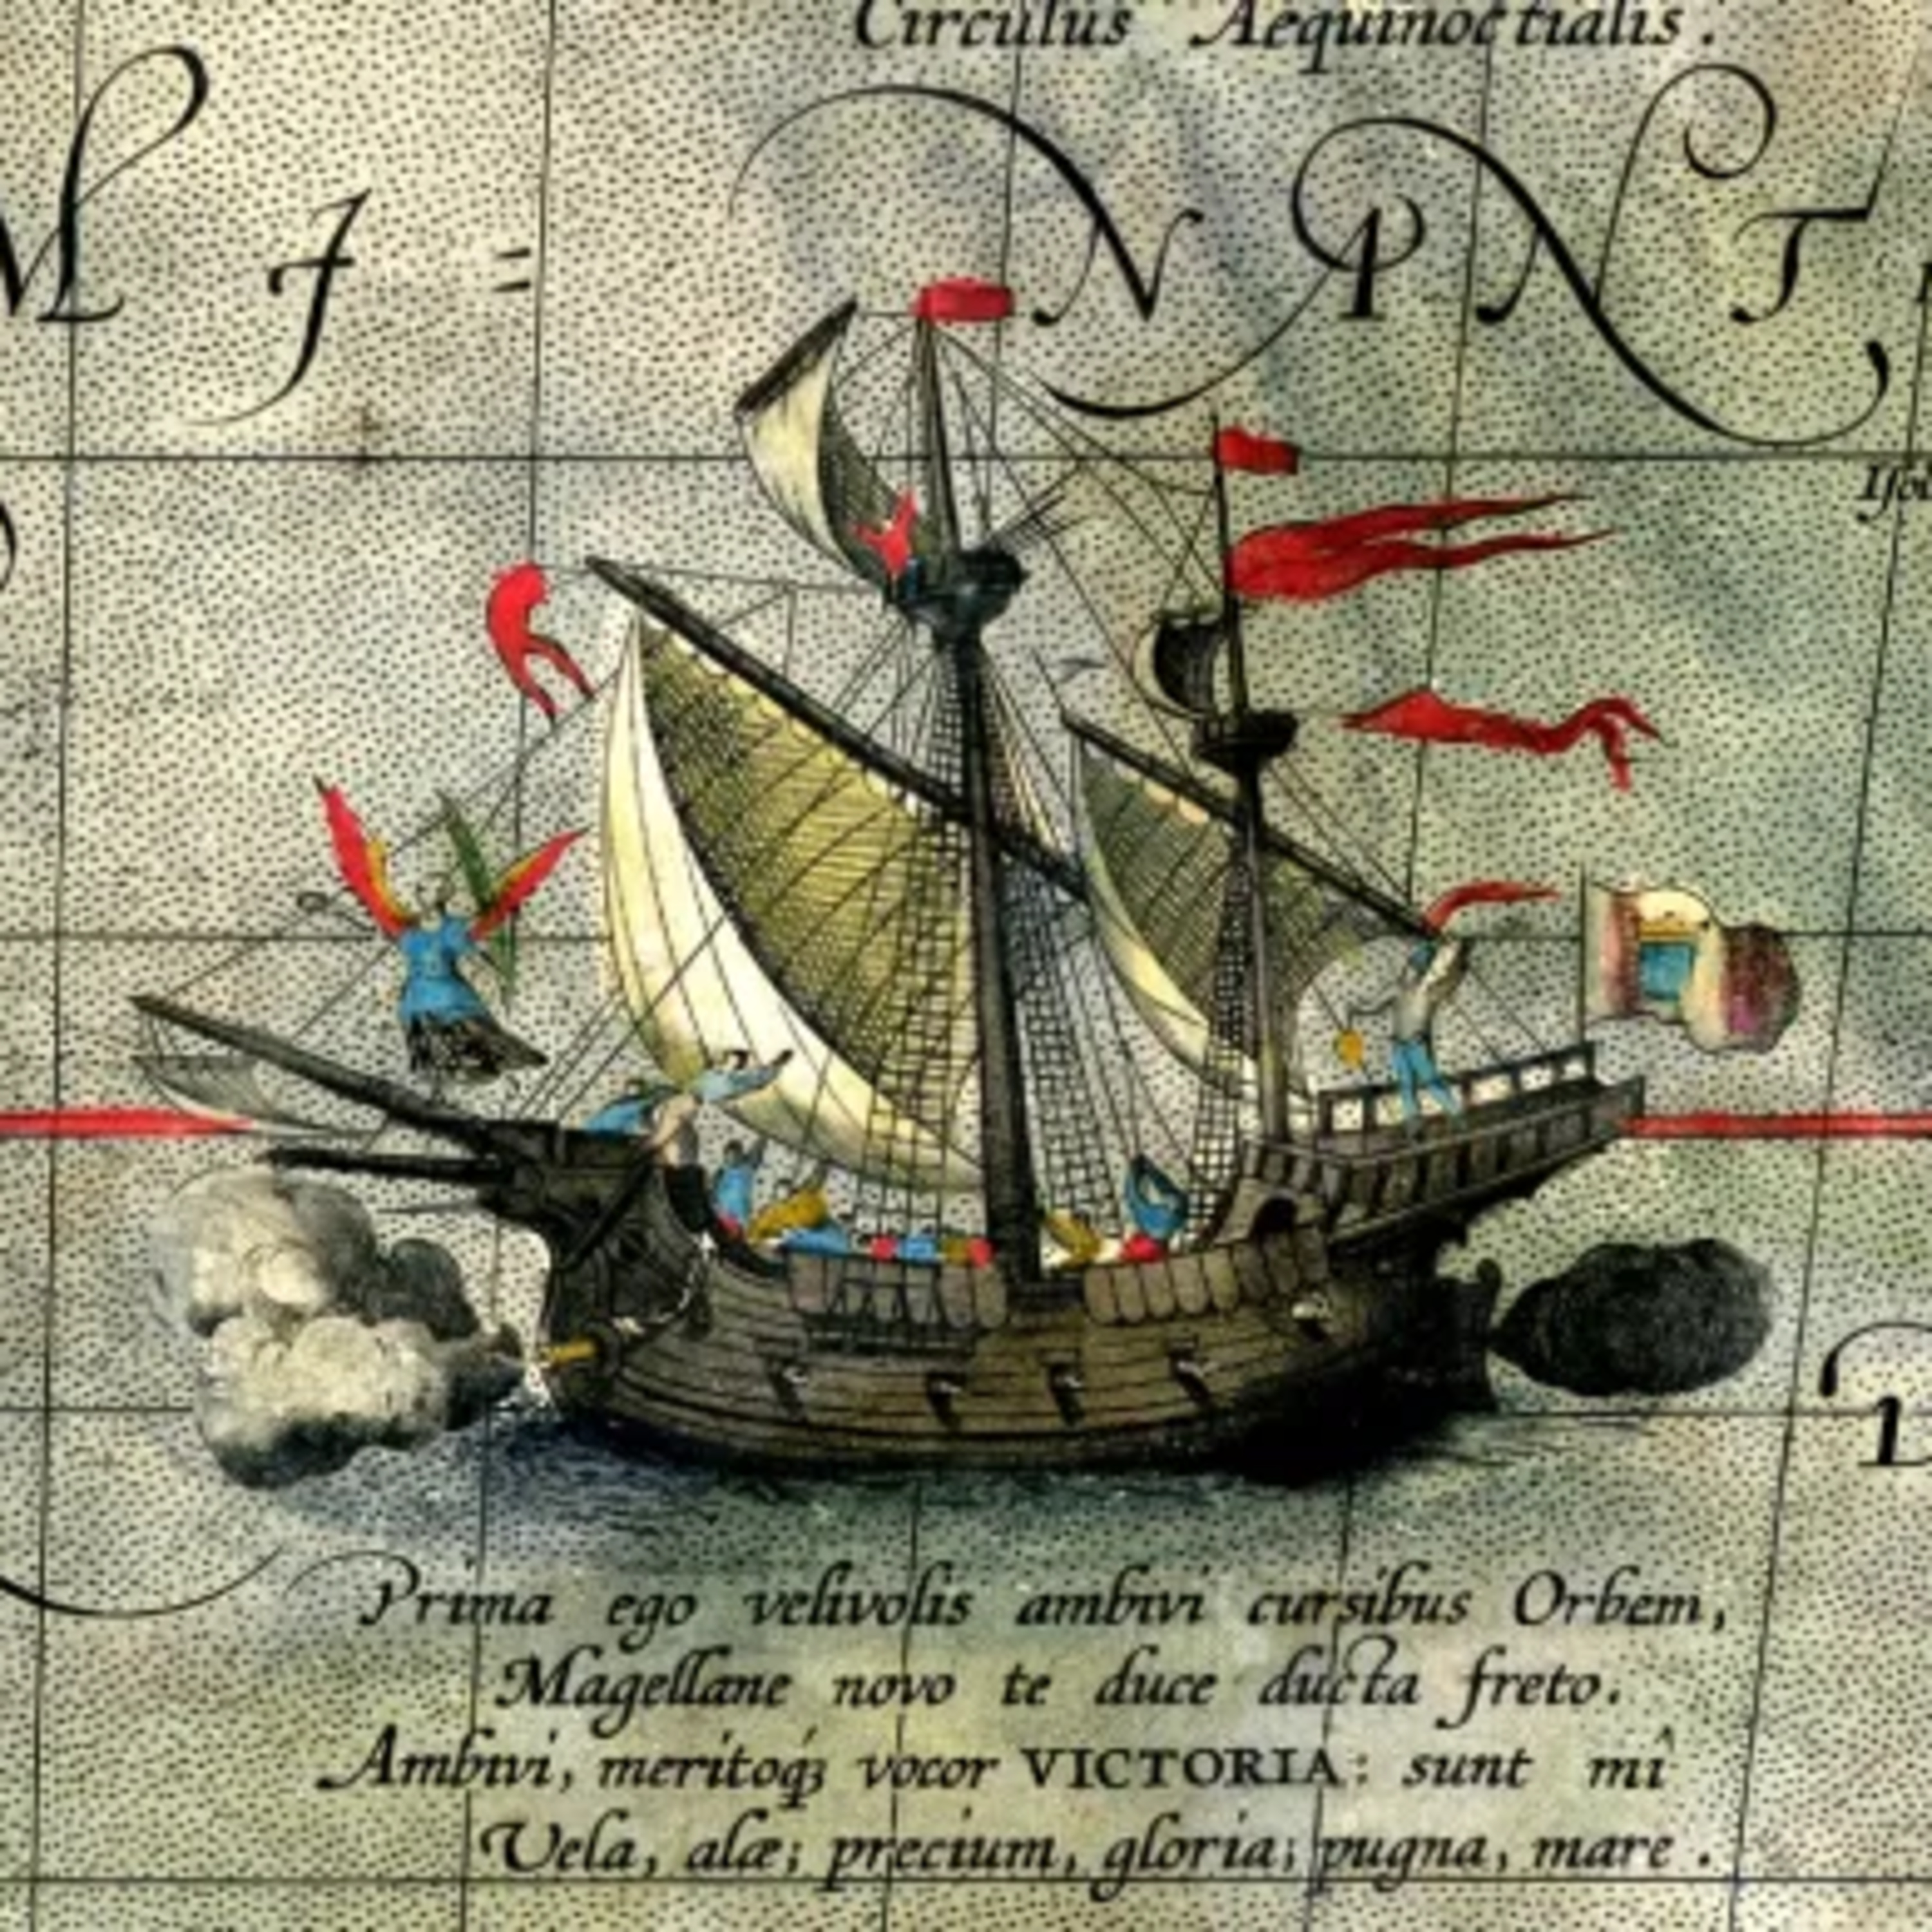 Circulus Aequinoctialis.
M J = N I N T
Prima ego velivolis ambivi cursibus Orbem,
Magellane novo te duce ducta freto.
Ambivi, meritoq́; vocor VICTORIA: sunt mî
Vela, alæ; precium, gloria; pugna, mare.